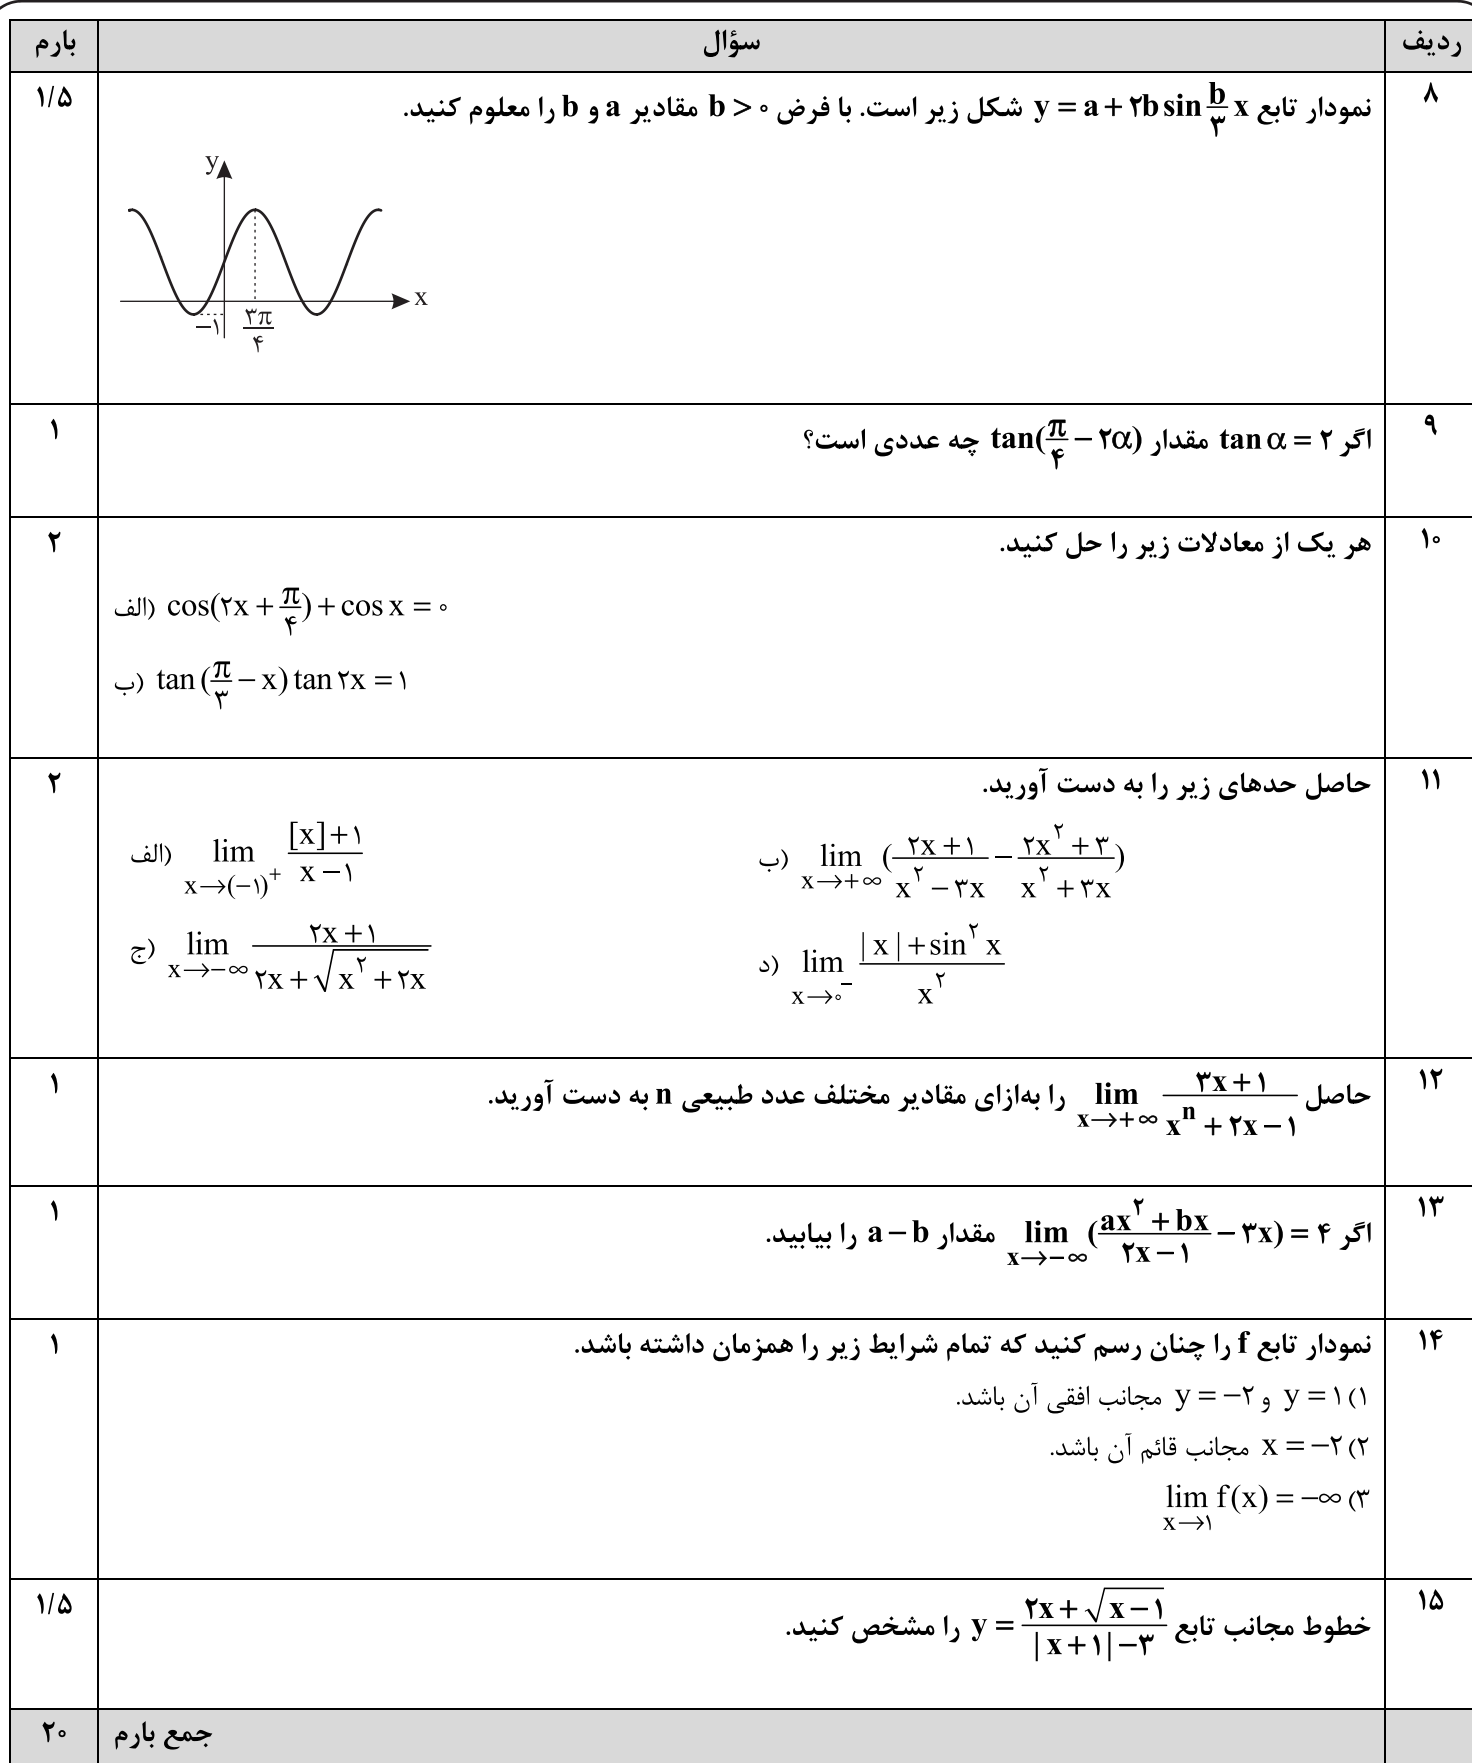 ردیف سؤال بارم
۸ نمودار تابع y = a + ۲b sin b/۳ x شکل زیر است. با فرض b > ۰ مقادیر a و b را معلوم کنید. ۱/۵
y
x
−۱
۳π/۴
۹ اگر tan α = ۲ مقدار tan(π/۴ − ۲α) چه عددی است؟ ۱
۱۰ هر یک از معادلات زیر را حل کنید. ۲
الف) cos(۲x + π/۴) + cos x = ۰
ب) tan (π/۳ − x) tan ۲x = ۱
۱۱ حاصل حدهای زیر را به دست آورید. ۲
الف) lim x→(−۱)⁺ ([x] + ۱)/(x − ۱)
ب) lim x→+∞ ((۲x + ۱)/(x^۲ − ۳x) − (۲x^۲ + ۳)/(x^۲ + ۳x))
ج) lim x→−∞ (۲x + ۱)/(۲x + √(x^۲ + ۲x))
د) lim x→۰⁻ (| x | + sin^۲ x)/x^۲
۱۲ حاصل lim x→+∞ (۳x + ۱)/(x^n + ۲x − ۱) را به‌ازای مقادیر مختلف عدد طبیعی n به دست آورید. ۱
۱۳ اگر lim x→−∞ ((ax^۲ + bx)/(۲x − ۱) − ۳x) = ۴ مقدار a − b را بیابید. ۱
۱۴ نمودار تابع f را چنان رسم کنید که تمام شرایط زیر را همزمان داشته باشد. ۱
۱) y = ۱ و y = −۲ مجانب افقی آن باشد.
۲) x = −۲ مجانب قائم آن باشد.
۳) lim x→۱ f(x) = −∞
۱۵ خطوط مجانب تابع y = (۲x + √(x − ۱))/(| x + ۱| − ۳) را مشخص کنید. ۱/۵
جمع بارم ۲۰